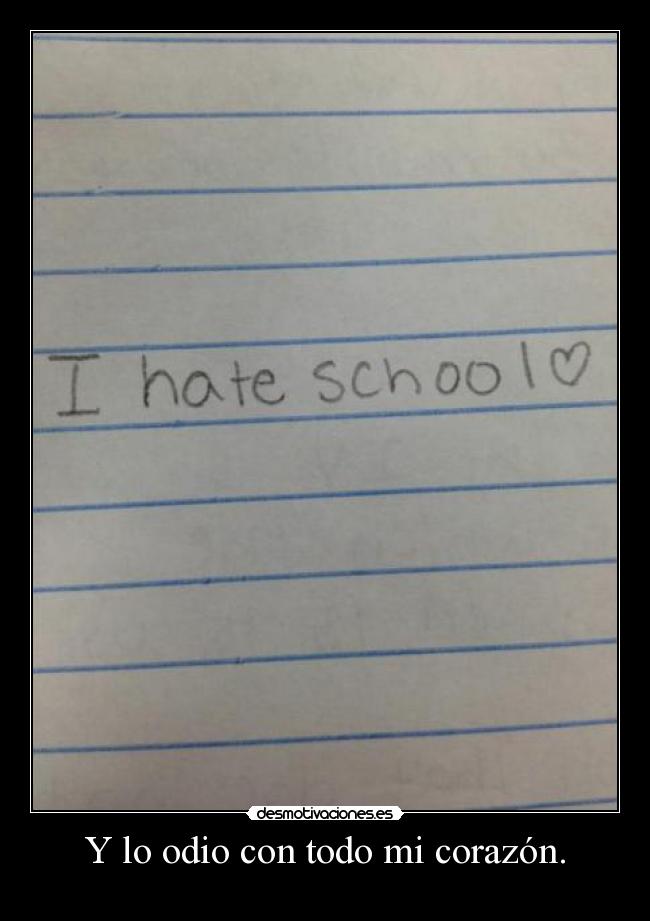 I hate school♡
desmotivaciones.es
Y lo odio con todo mi corazón.